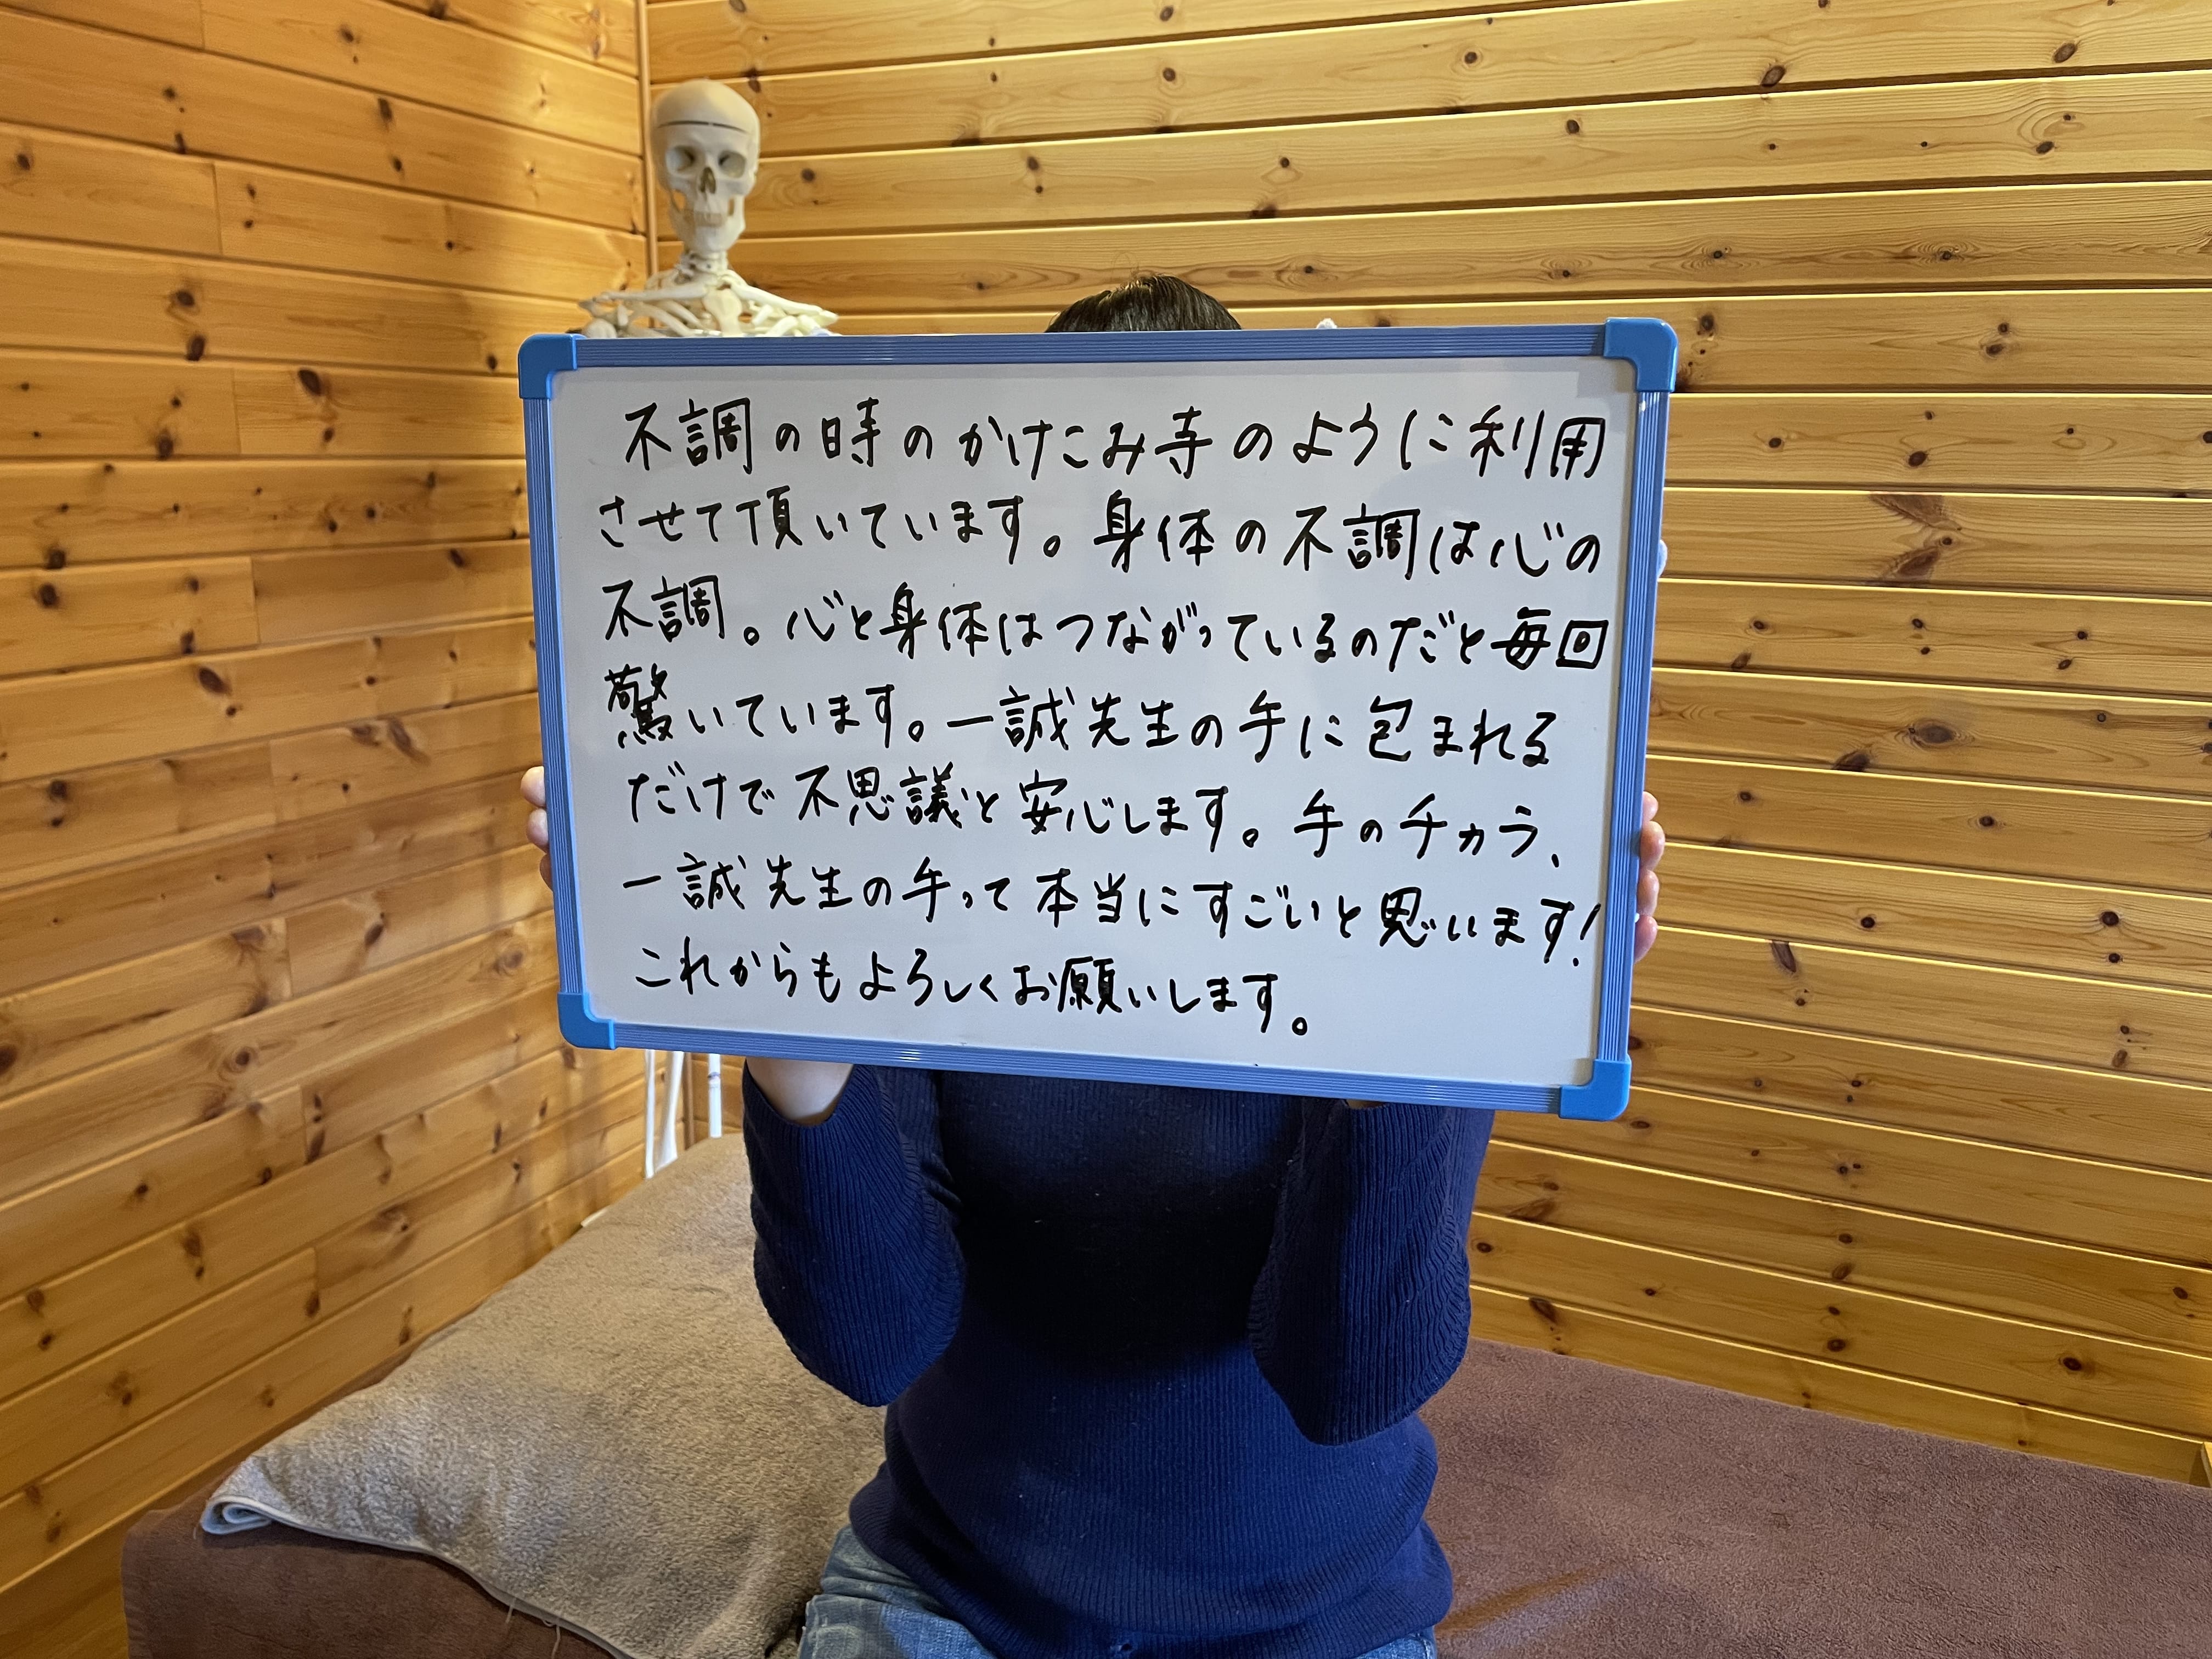 不調の時のかけこみ寺のように利用
させて頂いています。身体の不調は心の
不調。心と身体はつながっているのだと毎回
驚いています。一誠先生の手に包まれる
だけで不思議と安心します。手のチカラ、
一誠先生の手って本当にすごいと思います!
これからもよろしくお願いします。